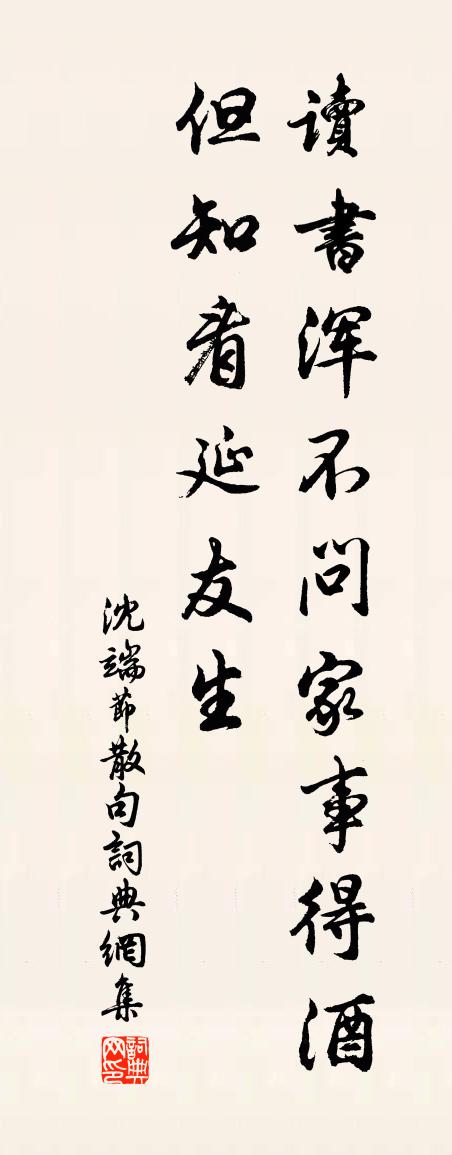 讀書渾不問家事得酒
但知看延友生
沈端節散句詞典網集
詞典网印